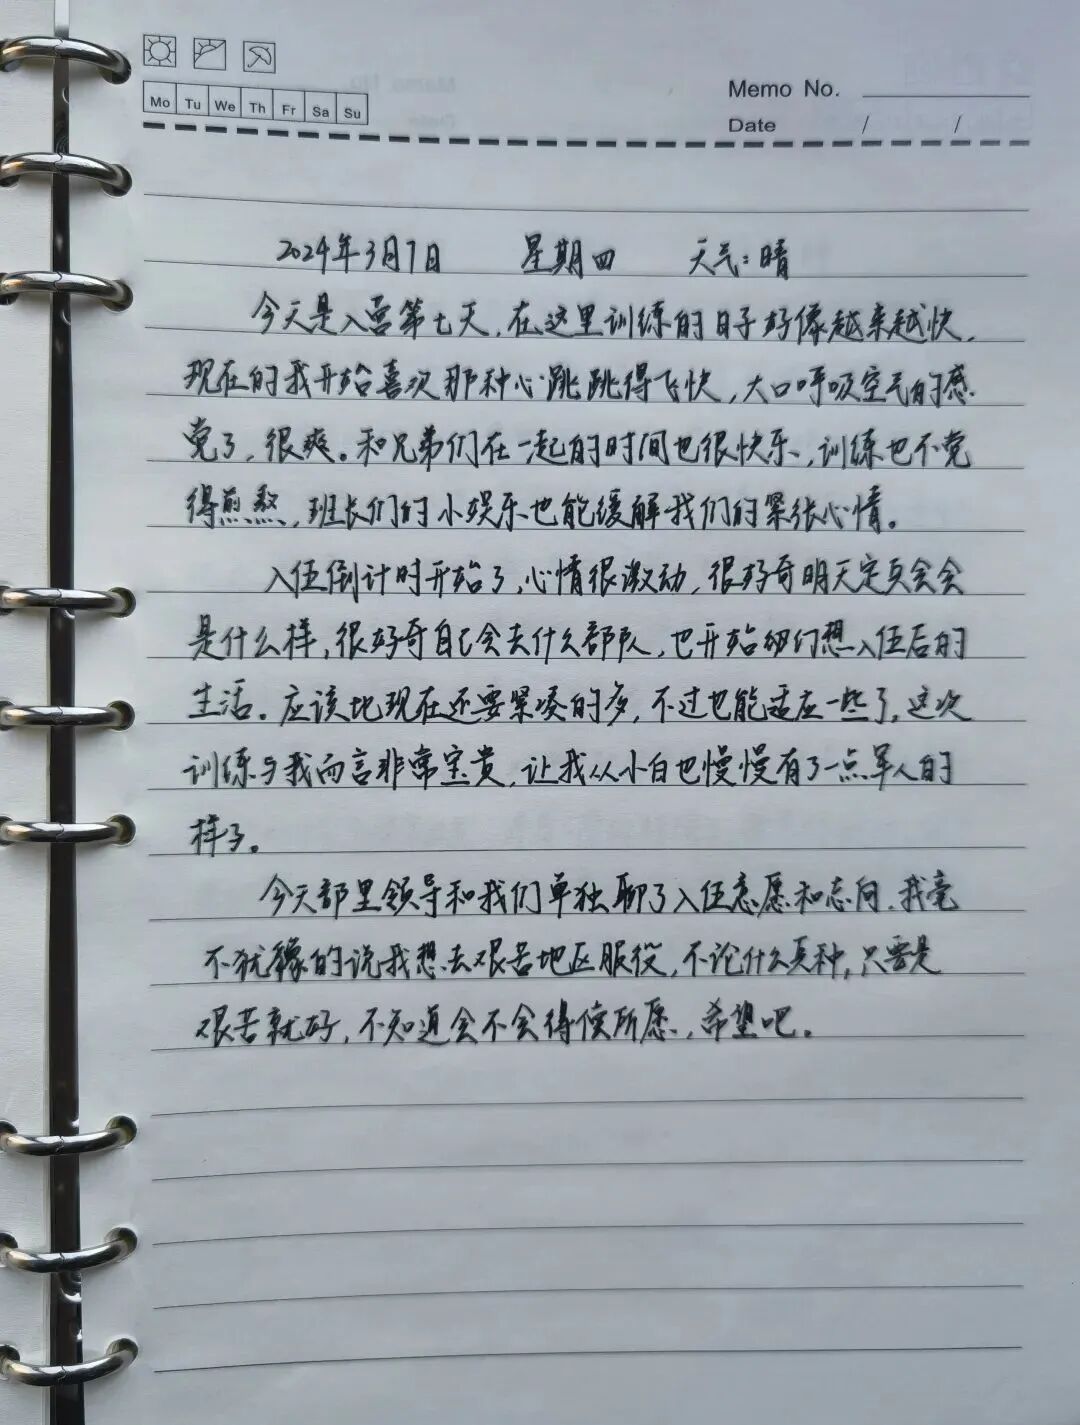 Mo Tu We Th Fr Sa Su
Memo No.
Date / /
2024年3月7日 星期四 天气：晴
今天是入营第七天，在这里训练的日子好像越来越快，
现在的我开始喜欢那种心跳跳得飞快，大口呼吸空气的感
觉了，很爽。和兄弟们在一起的时间也很快乐，训练也不觉
得煎熬，班长们的小娱乐也能缓解我们的紧张心情。
入伍倒计时开始了，心情很激动，很好奇明天定兵会会
是什么样，很好奇自己会去什么部队，也开始幻想入伍后的
生活。应该比现在还要紧凑的多，不过也能适应一些了，这次
训练与我而言非常宝贵，让我从小白也慢慢有了一点军人的
样子。
今天部里领导和我们单独聊了入伍意愿和志向，我毫
不犹豫的说我想去艰苦地区服役，不论什么兵种，只要是
艰苦就好，不知道会不会得偿所愿，希望吧。